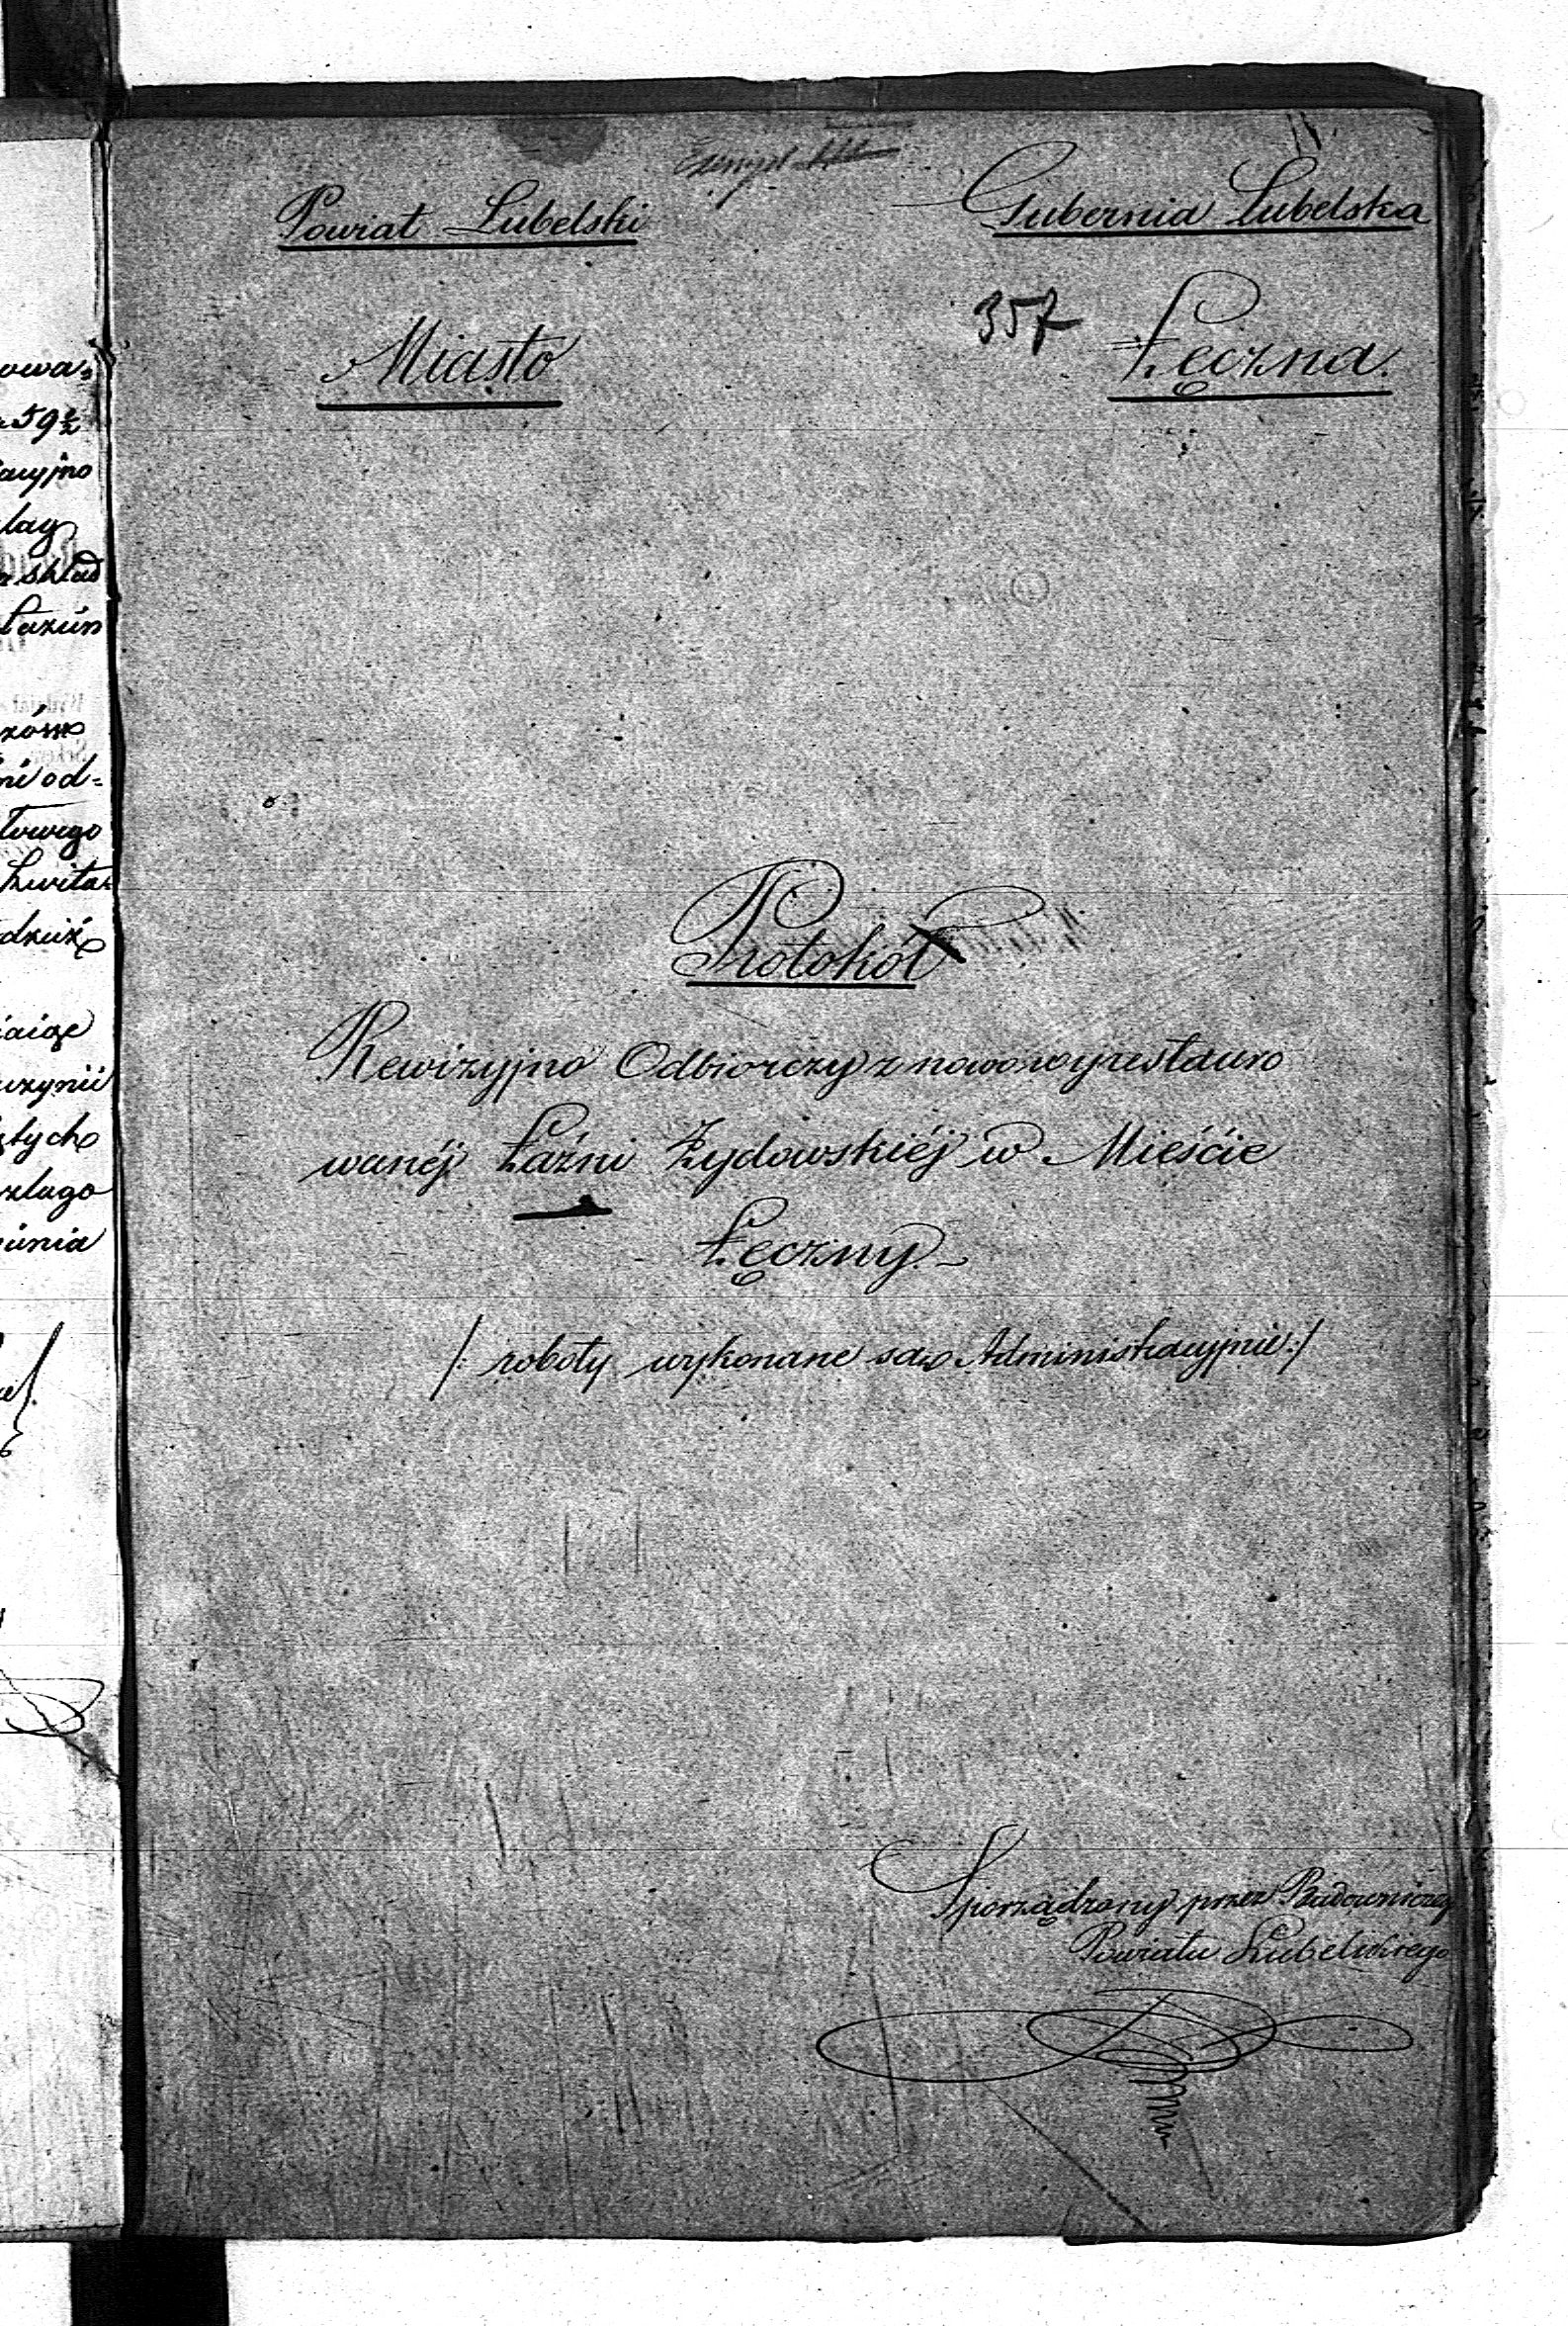 Powiat Lubelski
Gubernia Lubelska
357
Miasto
Łęczna.
Protokół
Rewizyjno Odbiorczy z nowo wyrestauro
wanéj Łaźni Żydowskiéj w Mieście
Łęczny.
/: roboty wykonane są Administracyjnie :/
Sporządzony przez Budowniczeg
Powiatu Lubelskiego
owa=
59½
acyjno
skład
ni od=
towego
stych